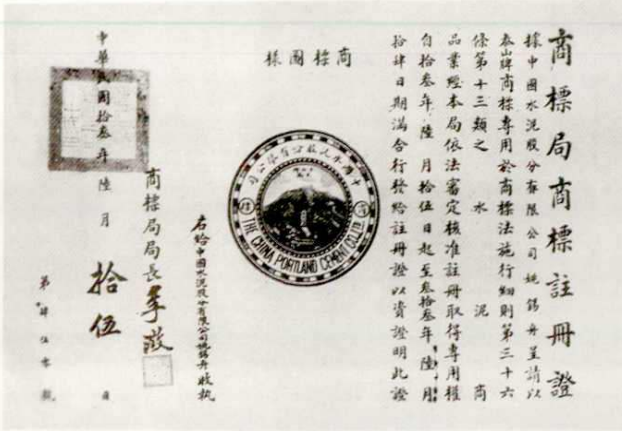 商標局商標註冊證
據中國水泥股分有限公司姚錫舟呈請以
泰山牌商標專用於商標法施行細則第三十六
條第十三類之水泥商
品業經本局依法審定核准註冊取得專用權
自拾叁年陸月拾伍日起至叁拾叁年陸月
拾肆日期滿合行發給註冊證以資證明此證
商標圖樣
中國水泥股份有限公司
THE CHINA PORTLAND CEMENT CO. LTD.
右給中國水泥股分有限公司姚錫舟收執
商標局局長李
中華民國拾叁年陸月拾伍日
第肆伍零號